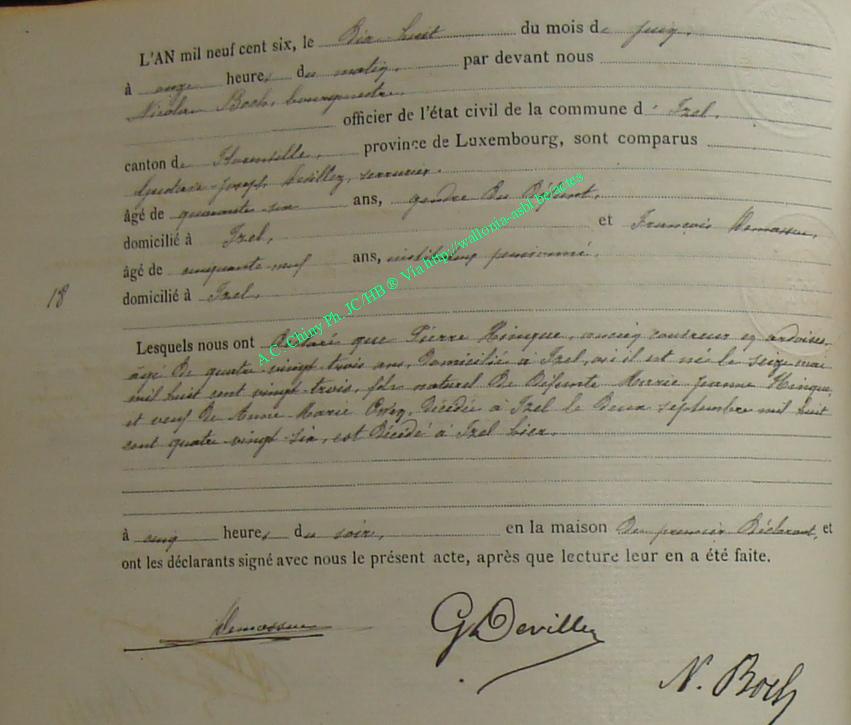 L'AN mil neuf cent six, le Dix-huit du mois de juin,
à onze heures du matin, par devant nous
Nicolas Boch, bourgmestre,
officier de l'état civil de la commune d' Izel,
canton de Florenville, province de Luxembourg, sont comparus
Gustave-Joseph Devillez, serrurier,
âgé de quarante-six ans, gendre du Défunt,
domicilié à Izel, et François
âgé de cinquante-neuf ans, instituteur pensionné,
18 domicilié à Izel,
Lesquels nous ont Déclaré que Pierre Hinque, ancien couvreur en ardoises,
âgé de quatre-vingt-trois ans, Domicilié à Izel, où il est né le seize mai
mil huit cent vingt-trois, fils naturel de Défunte Marie-Jeanne Hinque,
et veuf de Anne-Marie décédée à Izel le Deux septembre mil huit
cent quatre-vingt-six, est Décédé à Izel hier,
à cinq heures du soir, en la maison Du premier Déclarant, et
ont les déclarants signé avec nous le présent acte, après que lecture leur en a été faite.
G Devillez
N. Boch
A.C. Chiny Ph. JC/HB ® Via http://wallonia-asbl.be/actes